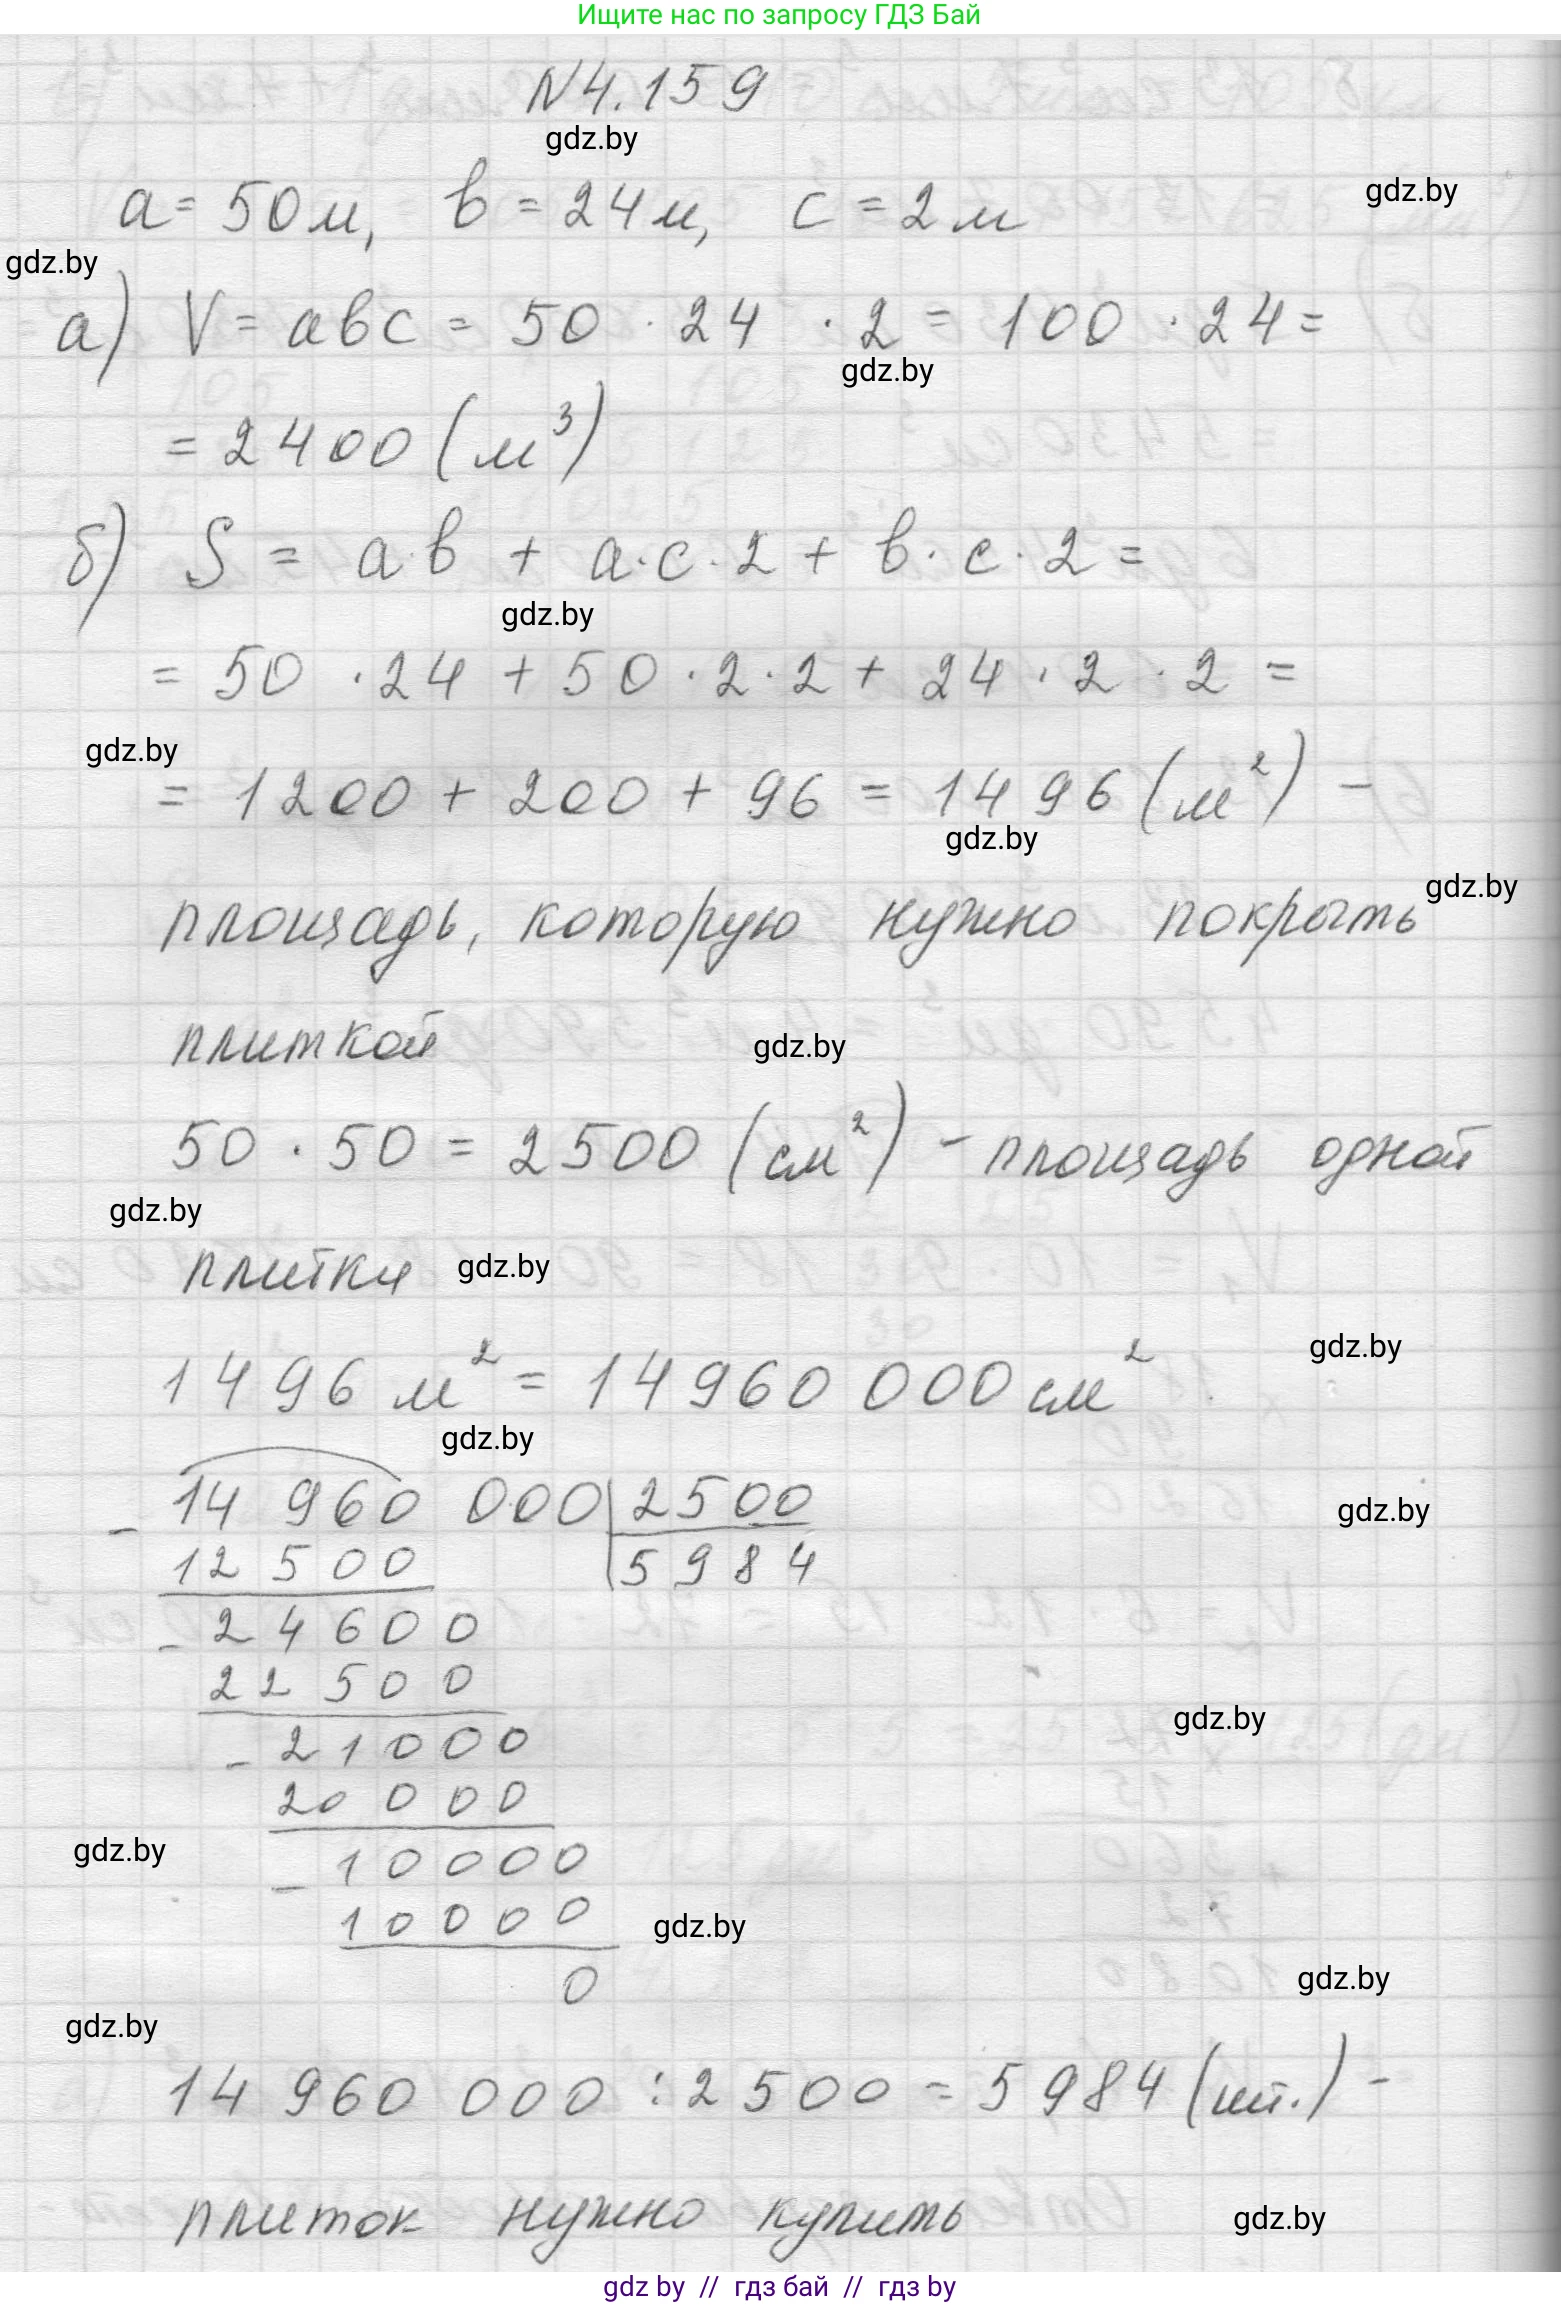 Ищите нас по запросу ГДЗ Бай
N4.159
gdz.by
a = 50 м, b = 24 м, c = 2 м
gdz.by
gdz.by
а) V = abc = 50 · 24 · 2 = 100 · 24 =
gdz.by
= 2400 (м³)
б) S = a·b + a·c·2 + b·c·2 =
gdz.by
= 50 · 24 + 50 · 2 · 2 + 24 · 2 · 2 =
gdz.by
= 1200 + 200 + 96 = 1496 (м²) –
gdz.by
gdz.by
площадь, которую нужно покрыть
плиткой
gdz.by
50 · 50 = 2500 (см²) – площадь одной
gdz.by
плитки
gdz.by
1496 м² = 14960 000 см²
gdz.by
gdz.by
– 14 960 000 | 2500
gdz.by
12 500 | 5984
– 24600
22500
– 21000
gdz.by
20000
– 10000
gdz.by
10000
gdz.by
0
gdz.by
gdz.by
14 960 000 : 2500 = 5984 (шт.) –
плиток нужно купить
gdz.by
gdz by // гдз бай // гдз by